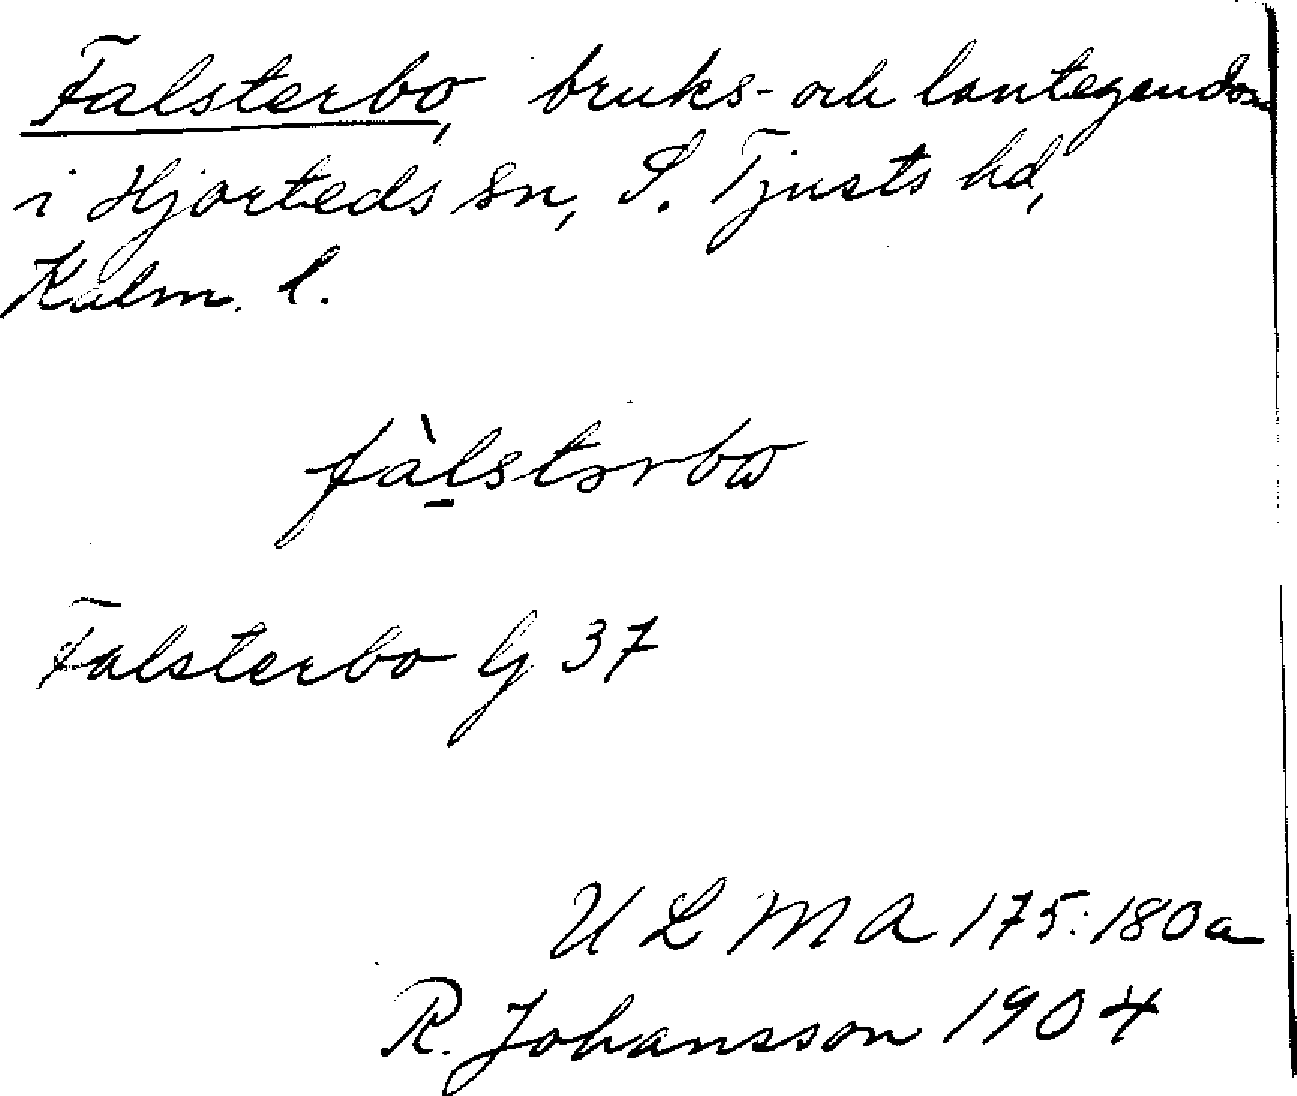 Falsterbo, bruks- och lantegendom
i Hjorteds sn, S. Tjusts hd,
Kalm. l.
fàlstərbω
Falsterbo G 37
U L M A 175:180a
R. Johansson 1904